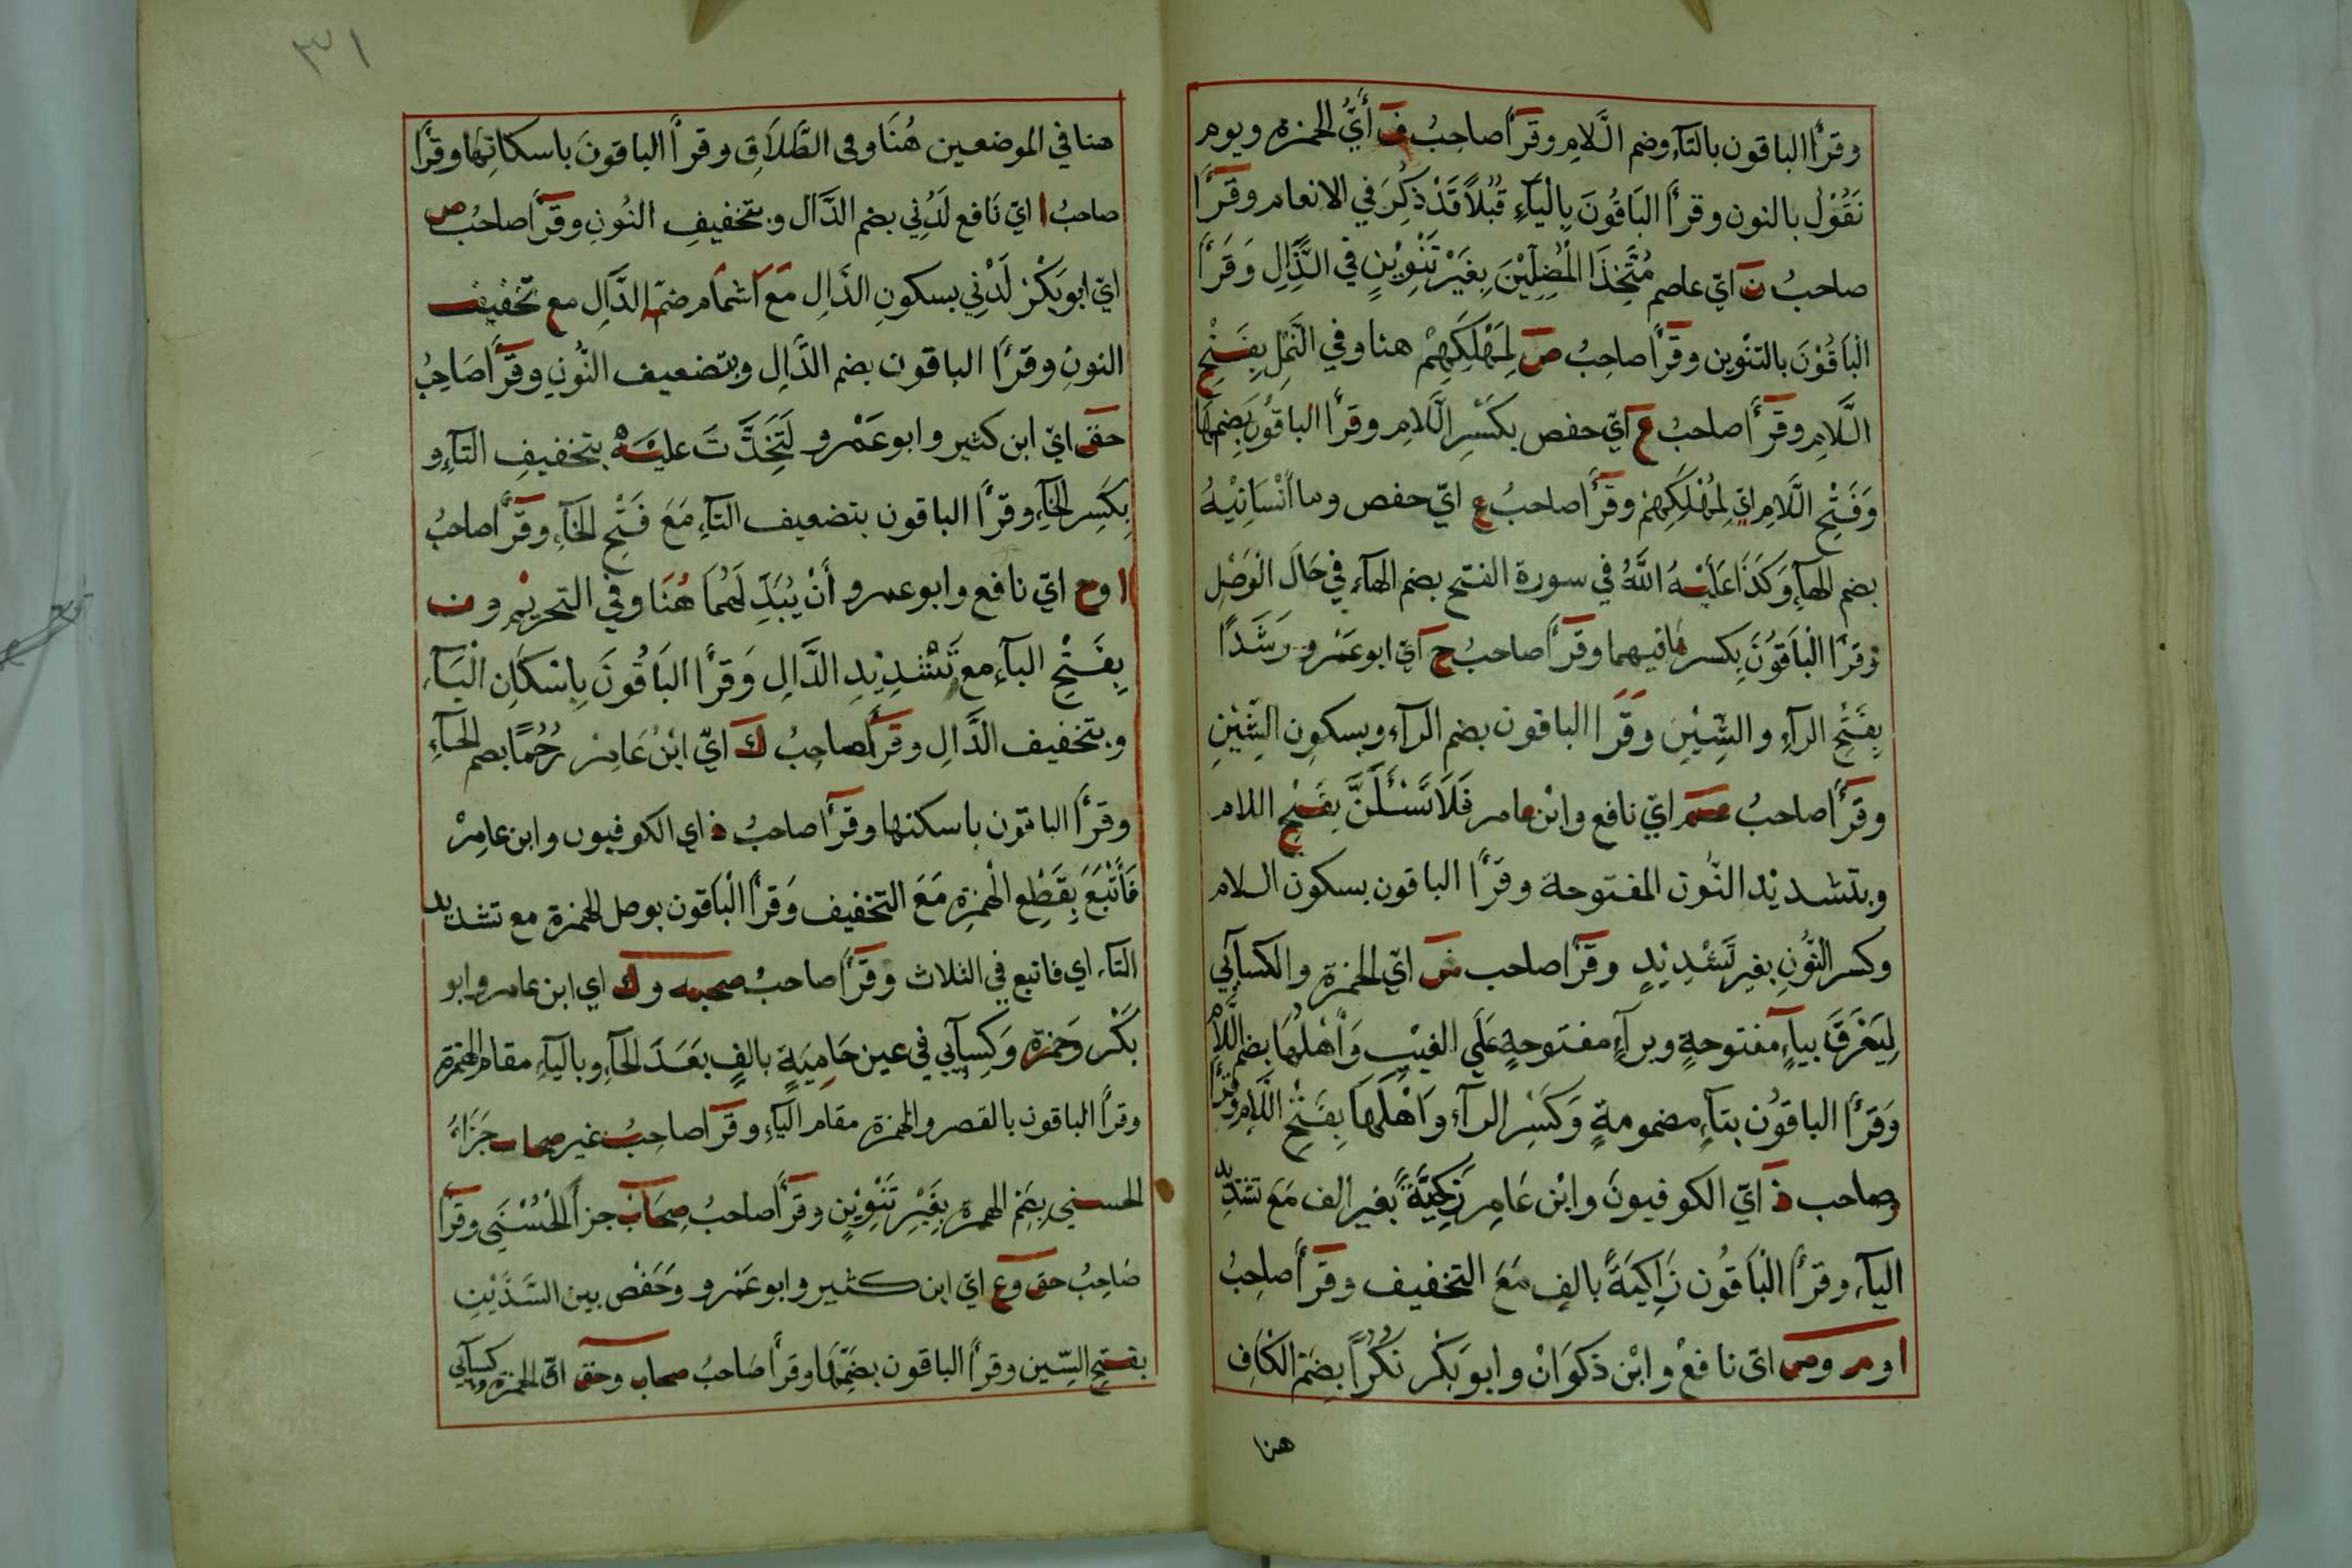 وقرأ الباقون بالتآء وضم اللام وقرأ صاحبُ ف أيّ الحمزة ويوم
نَقُوْلُ بالنون وقرأ البَاقُونَ بِالْيَآءِ قُبُلًا قَدْ ذُكِرَ في الانعام وقرأ
صاحبُ ن ايّ عاصم مُتَّخِذَ الْمُضِلِّيْنَ بِغَيْرِ تَنْوِيْنٍ فِي الذَّالِ وَقَرَأ
الْبَاقُوْنَ بالتنْوين وقرأ صاحِبُ ص لِمَهْلَكِهِمْ هنا وفي النَّمْلِ بِفَتْحِ
اللَّام وقرأ صاحبُ ع ايّ حفص بكَسْرِ اللَّام وقرأ الباقون بضمها
وَفَتْحِ اللَّامِ ايّ لِمُهْلَكِهِمْ وقرأ صاحبُ ع ايّ حفص وما أنْسَانِيْهُ
بضم الهآءِ وَكَذَا عَلَيْهُ اللَّهُ في سورة الفتح بضم الهآء في حَالَ الْوَصْلِ
وَقرأ الْبَاقُوْنَ بِكسرها فيهما وقرأ صاحبُ ح ايّ ابو عَمْرو رَشَدًا
بِفَتْحِ الرآءِ والشِّيْنِ وَقَرَأ الباقون بضم الرآء وبسكون الشِّيْنِ
وقرأ صاحبُ عم ايّ نافع وابْن عامر فَلَا تَسْئَلَنَّ بِفَتْحِ اللام
وبتشديْد النُّون المفتوحة وقرأ الباقون بسكون اللام
وكسر النُّونِ بغير تَشْدِيْدٍ وقرأ صاحب ش ايّ الحمزة والكسآئي
لِيَغْرَقَ بيآءٍ مفتوحةٍ وبرآءٍ مفتوحةٍ عَلَي الغيْبِ وَأَهْلُهَا بضم اللَّام
وَقرأ الباقوُن بتآءٍ مضمومةٍ وَكَسْرِ الرآءِ وَاَهْلَهَا بِفَتْحِ اللَّامِ وقرأ
صاحب ذ ايّ الكوفيونَ وابْن عَامِر زَكِيَّةً بغير الف مَعَ تشديد
اليآء وقرأ الْبَاقُون زَاكِيَةً بالفٍ مَعَ التخفيف وقرأ صاحِبُ
ا وم وص اىّ نافعْ وابْن ذكوَانْ وابو بَكْر نُكُرًا بِضَمّ الكاف
هنا
٣١
هنا في الموضعين هُنَا وفى الطَّلَاقِ وقرأ الباقونَ باسكانِها وقرأ
صاحبُ ا ايّ نَافع لَدُنِي بضم الدَّال وبتخفيفِ النُونِ وقرأ صاحبُ ص
ايّ ابو بَكْر لَدْنِي بسكونِ الدَّالِ مَع اَشمام ضمّة الدَّالِ مع تخفيف
النونِ وقرأ الباقون بضم الدَّالِ وبتضعيف النُّونِ وقرأ صَاحِبُ
حق ايّ ابن كثير وابو عَمْرو لَتَخِذْتَ عليْه بتخفيفِ التآءِ و
بكَسِر الخآءِ وقرأ الباقون بتضعيف التآءِ مَعَ فَتْحِ الخآءِ وقرأ صاحبُ
ا وح ايّ نافع وابو عمرو أَنْ يُبَدِّ لَهُمَا هُنَا وفي التحريْم ون
بِفَتْحِ البآءِ مع تَشْدِيْدِ الدَّالِ وَقرأ البَاقُونَ بِاِسْكَانِ الْبَآءِ
وبتخفيف الدَّالِ وقرأ صاحِبُ ك ايّ ابْنُ عَامِر رُحُمًا بضم الحآءِ
وقرأ الباقون باسكنها وقرأ صاحبُ ذ اي الكوفيون وابن عامِرْ
فَأَتْبَعَ بِقَطْعِ الْهمْزةِ مَعَ التخفيف وَقرأ الْبَاقون بوصل الهمزة مع تشديد
التآء اي فاتبع في الثلاث وقرأ صاحبُ صحبه وك اي ابن عامر وابو
بَكْر وَحَمزة وَكِسآئي في عين حَامِيَةٍ بالفٍ بَعْدَ الحآءِ وباليآءِ مقام الهمزة
وقرأ الباقون بالقصر والهمزة مقام اليآءِ وقرأ صاحِبُ غير صحاب جَزَاءُ
الحسني بِضَمِّ الهمزة بِغَيْرِ تَنْوِيْنٍ وقرأ صاحبُ صِحَابٌ جزأ الْحُسْنَى وقرأ
صَاحِبُ حق وع ايّ ابن كثير وابو عَمْرو وَحَفْص بين السَّدَّيْنِ
بفتحِ السّين وقرأ الباقون بضَمِّهَا وقرأ صَاحبُ صحاب وحق ايّ الحمزة وكسآئي